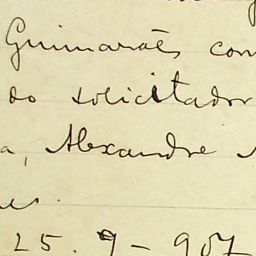 Guimarães, con
do solicitador
a, Alexandre
es.
25.9-907